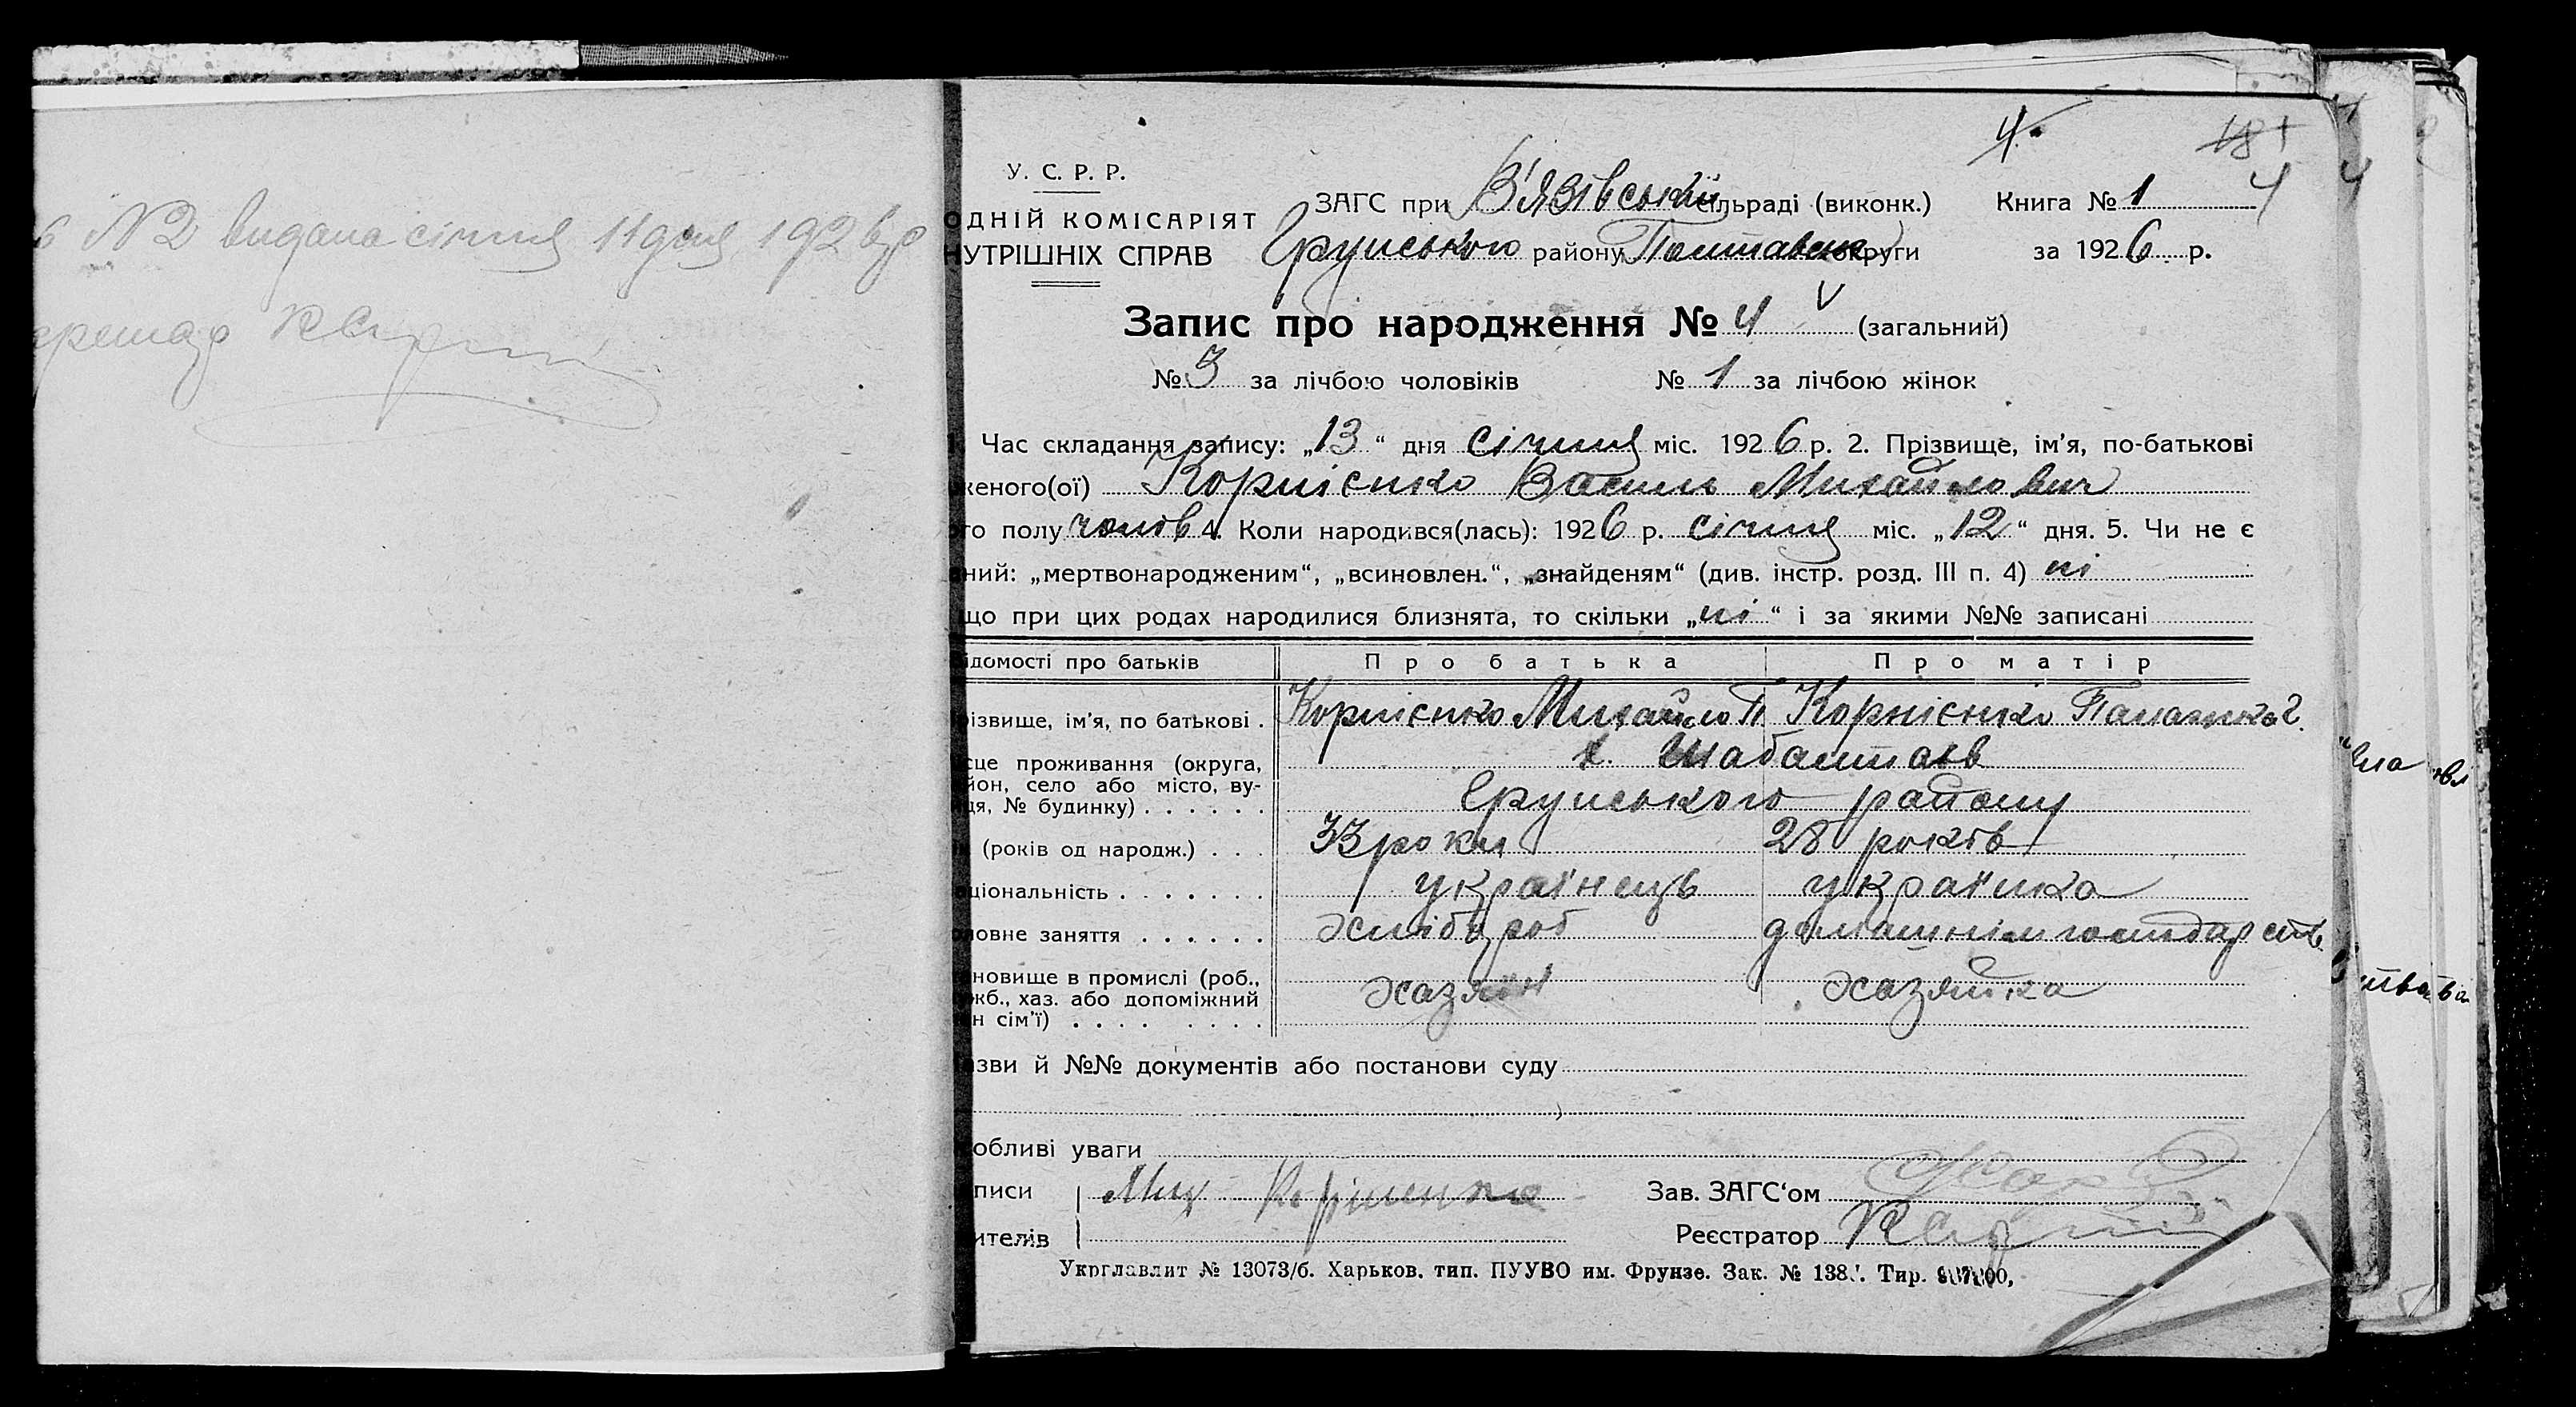 6 № 2 видана січня 11 дня 1926 р
У. С. Р. Р.
ОДНІЙ КОМІСАРІЯТ
НУТРІШНІХ СПРАВ
4.
181
4
ЗАГС при В'язівській сільраді (виконк.) Книга № 1
Грунського району Полтавськ округи за 1926 р.
Запис про народження № 4 (загальний)
№ 3 за лічбою чоловіків № 1 за лічбою жінок
Час складання запису: „13“ дня січня міс. 1926 р. 2. Прізвище, ім'я, по-батькові
женого(ої) Корнієнко Василь Михайлович
го полу чолов 4. Коли народився(лась): 1926 р. січня міс. „12“ дня. 5. Чи не є
ний: „мертвонародженим“, „всиновлен.“, „знайденям“ (див. інстр. розд. III п. 4) ні
що при цих родах народилися близнята, то скільки „ні“ і за якими №№ записані
ідомості про батьків Про батька Про матір
різвище, ім'я, по батькові . Корнієнко Михайло П Корнієнко Параска
сце проживання (округа, х. Шабалтаїв
йон, село або місто, ву-
ця, № будинку) . . . . . . Грунського району
(років од народж.) . . . 33 роки 28 років
ціональність . . . . . . . українець українка
ловне заняття . . . . . . хлібороб домашнім господарств
новище в промислі (роб.,
жб., хаз. або допоміжний хазяїн хазяйка
н сім'ї) . . . . . . . .
зви й №№ документів або постанови суду
обливі уваги
писи Мих Корнієнко Зав. ЗАГС‘ом
ителів Реєстратор
Укрглавлит № 13073/б. Харьков. тип. ПУУВО им. Фрунзе. Зак. № 138 Тир.